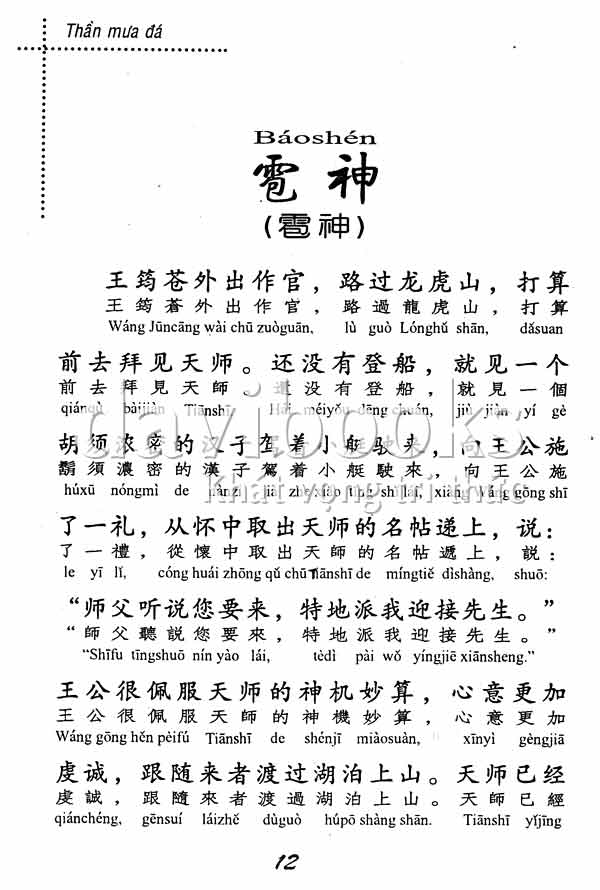 Thần mưa đá
Báoshén
雹神
(雹神)
王筠苍外出作官，路过龙虎山，打算
王筠蒼外出作官，路過龍虎山，打算
Wáng Jūncāng wài chū zuòguān, lù guò Lónghǔ shān, dǎsuan
前去拜见天师。还没有登船，就见一个
前去拜見天師。還没有登船，就見一個
qiánqù bàijiàn Tiānshī. Hái méiyǒu dēng chuán, jiù jiàn yí gè
胡须浓密的汉子驾着小艇驶来，向王公施
鬍須濃密的漢子駕着小艇駛來，向王公施
húxū nóngmì de hànzi jià zhe xiǎo tǐng shǐ lái, xiàng Wáng gōng shī
davibooks
khát vọng tri thức
了一礼，从怀中取出天师的名帖递上，说：
了一禮，從懷中取出天師的名帖遞上，説：
le yī lǐ, cóng huái zhōng qǔ chū Tiānshī de míngtiě dìshàng, shuō:
“师父听说您要来，特地派我迎接先生。”
“師父聽説您要來，特地派我迎接先生。”
“Shīfu tīngshuō nín yào lái, tèdì pài wǒ yíngjiē xiānsheng.”
王公很佩服天师的神机妙算，心意更加
王公很佩服天師的神機妙算，心意更加
Wáng gōng hěn pèifú Tiānshī de shénjī miàosuàn, xīnyì gèngjiā
虔诚，跟随来者渡过湖泊上山。天师已经
虔誠，跟隨來者渡過湖泊上山。天師已經
qiánchéng, gēnsuí láizhě dùguò húpō shàng shān. Tiānshī yǐjīng
12